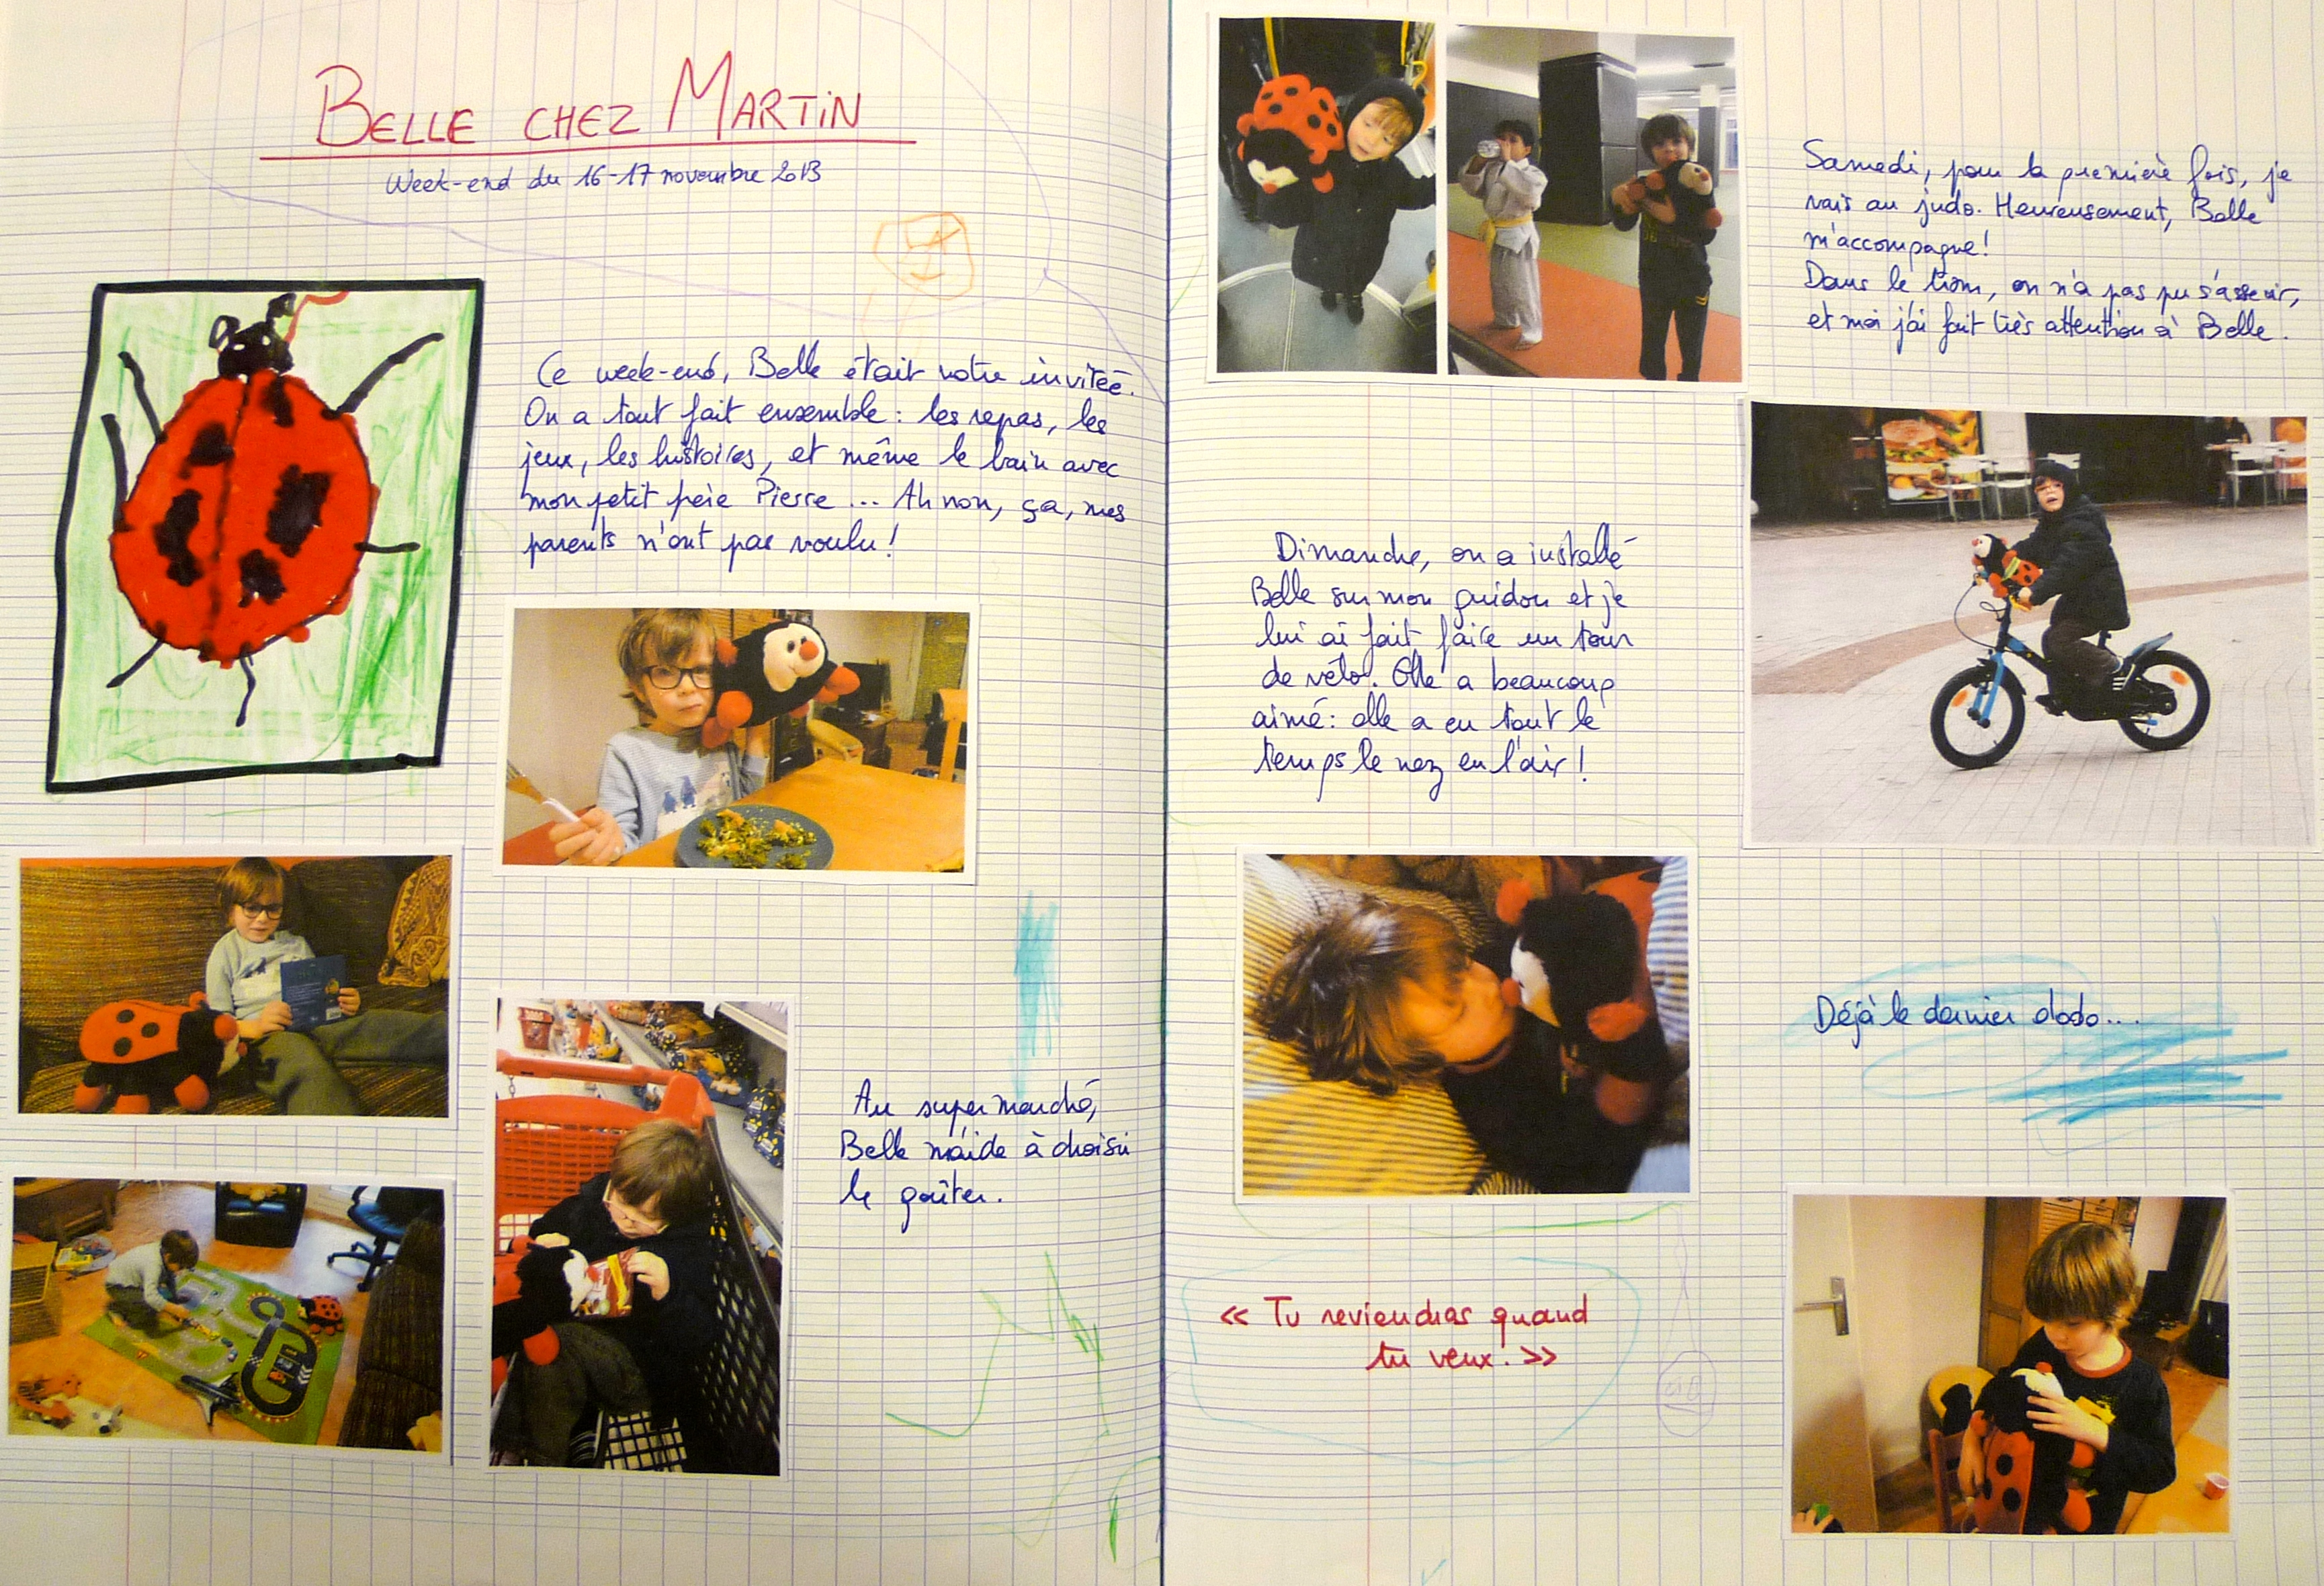 BELLE CHEZ MARTIN
Week-end du 16-17 novembre 2013
Ce week-end, Belle était notre invitée.
On a tout fait ensemble : les repas, les
jeux, les histoires, et même le bain avec
mon petit frère Pierre ... Ah non, ça, mes
parents n'ont pas voulu !
Au supermarché,
Belle m'aide à choisir
le goûter.
Samedi, pour la première fois, je
vais au judo. Heureusement, Belle
m'accompagne !
Dans le tram, on n'a pas pu s'asseoir,
et moi j'ai fait très attention à Belle.
Dimanche, on a installé
Belle sur mon guidon et je
lui ai fait faire un tour
de vélo. Elle a beaucoup
aimé : elle a eu tout le
temps le nez en l'air !
Déjà le dernier dodo...
« Tu reviendras quand
tu veux. »